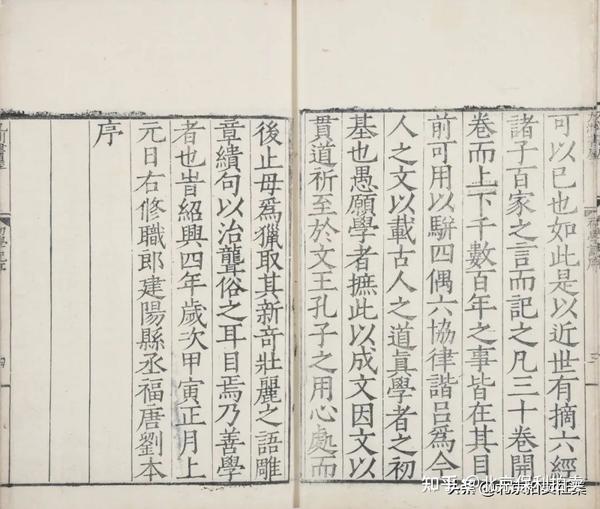 可以已也如此是以近世有摘六經
諸子百家之言而記之凡三十卷開
卷而上下千數百年之事皆在其目
前可用以駢四偶六協律諧呂爲今
人之文以載古人之道眞學者之初
基也愚願學者摭此以成文因文以
貫道祈至於文王孔子之用心處而
後止毋爲獵取其新奇壯麗之語雕
章繢句以治聾俗之耳目焉乃善學
者也旹紹興四年歲次甲寅正月上
元日右修職郎建陽縣丞福唐劉本
序